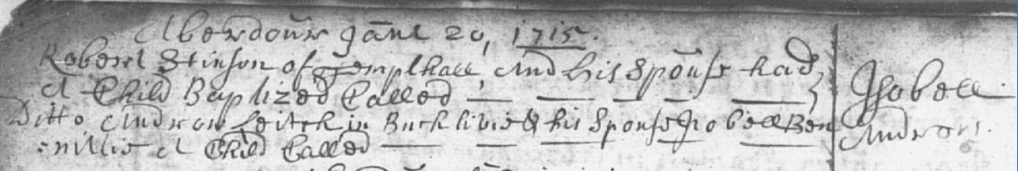 Aberdour Janr 20, 1715.
Robert Stinson of Templhall, And his Spouse had
A Child Baptized Called Isobell
Ditto Andrew Leitch in Bucklivie & his Spouse Isobell Ben
A Child Called Andrew.